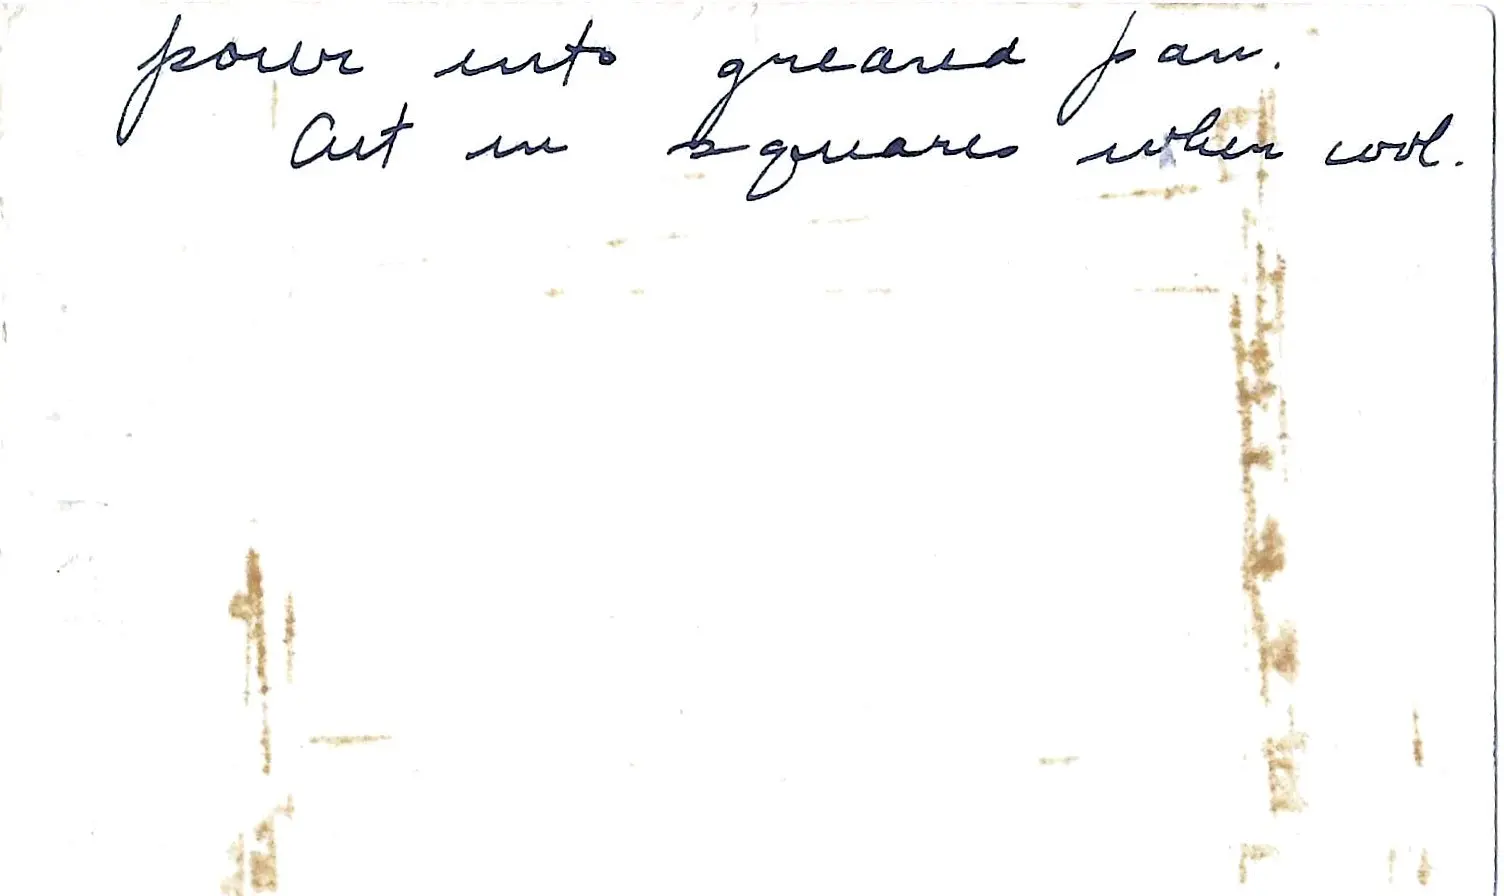 pour into greased pan.
Cut in squares when cool.